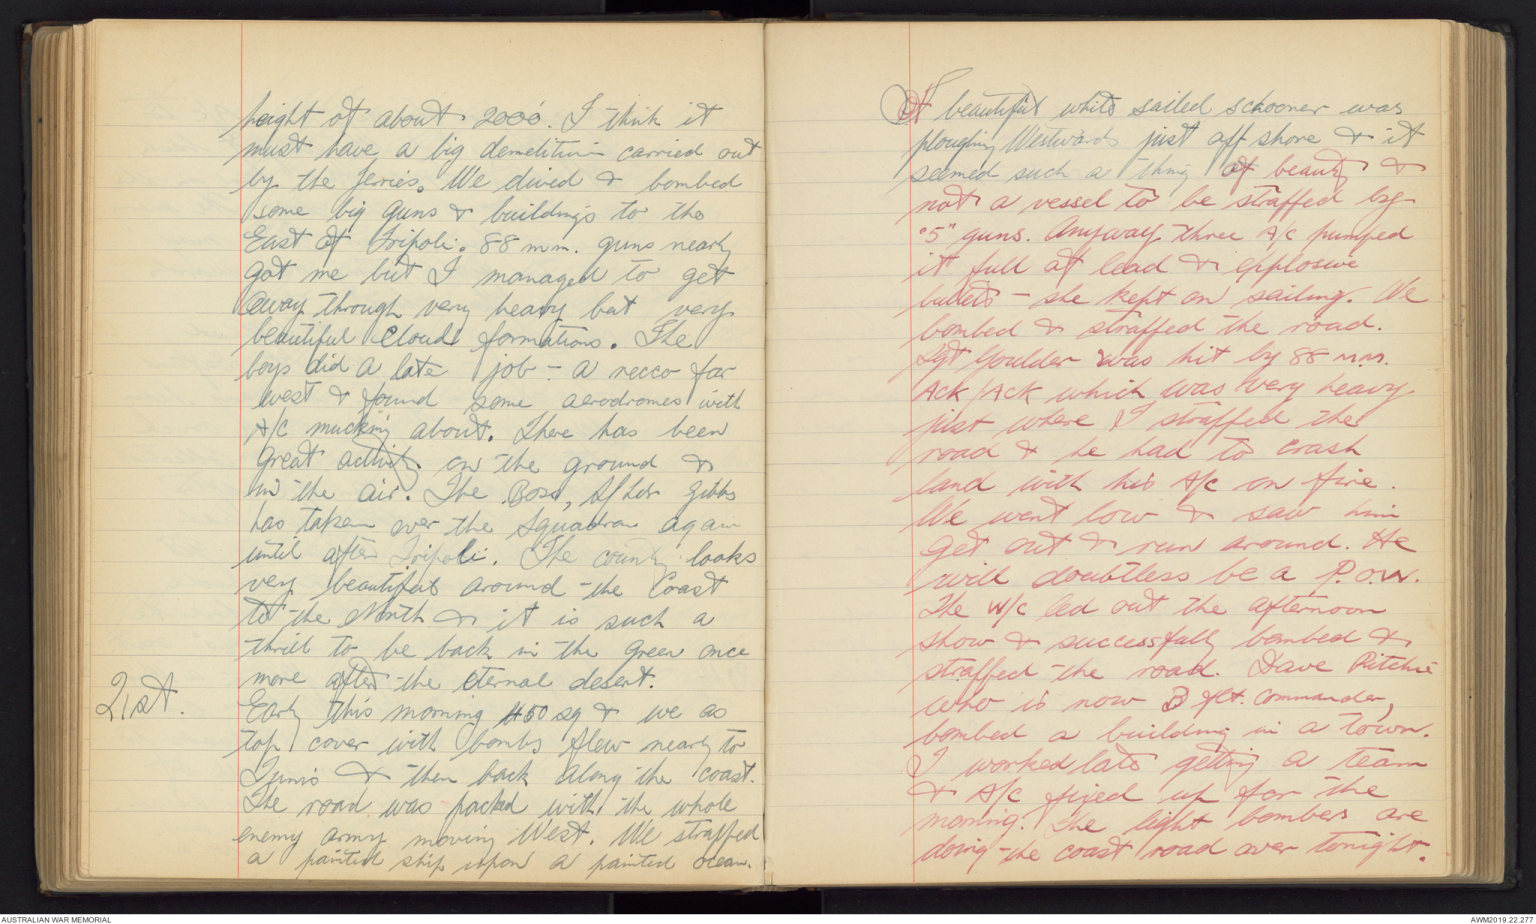 height of about 2000'. I think it
must have a big demolition carried out
by the Jerries. We dived & bombed
some big guns & buildings to the
East of Tripoli. 88 m.m. guns nearly
got me but I managed to get
away through very heavy but very
beautiful cloud formations. The
boys did a late job - a recco far
west & found some aerodromes with
A/C mucking about. There has been
great activity on the ground &
in the air. The Boss, S/Ldr Gibbs
has taken over the Squadron again
until after Tripoli. The country looks
very beautiful around the Coast
to the North & it is such a
thrill to be back in the green once
more after the eternal desert.
21st.
Early this morning 450 sq & we as
top cover with bombs flew nearly to
Tunis & then back along the coast.
The road was packed with the whole
enemy army moving West. We straffed
a painted ship upon a painted ocean.
A beautiful white sailed schooner was
ploughing Westwards just off shore & it
seemed such a thing of beauty &
not a vessel to be straffed by
".5" guns. Anyway three A/C pumped
it full of lead & explosive
bullets - she kept on sailing. We
bombed & straffed the road.
Sgt Goulder was hit by 88 m.m.
Ack/Ack which was very heavy
just where I straffed the
road & he had to crash
land with his A/C on fire.
We went low & saw him
get out & run around. He
will doubtless be a P.O.W.
The W/C led out the afternoon
show & successfully bombed &
straffed the road. Dave Ritchie
who is now B flt. Commander,
bombed a building in a town.
I worked late getting a team
& A/C fixed up for the
morning. The light bombers are
doing the coast road over tonight.
AUSTRALIAN WAR MEMORIAL
AWM2019.22.277